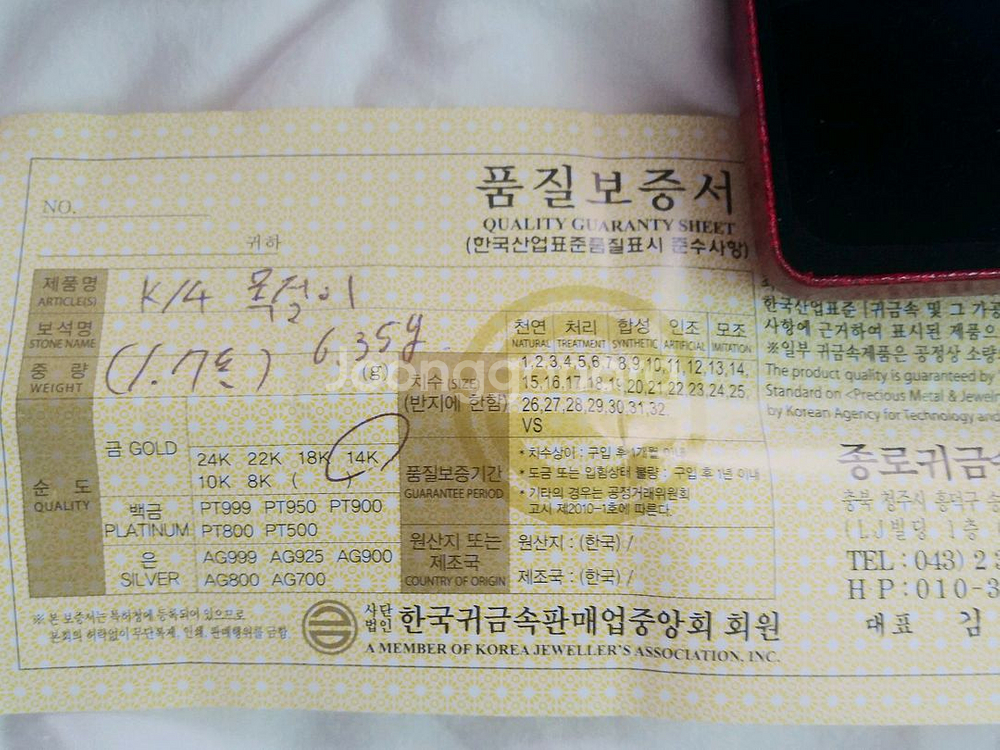 품질보증서
QUALITY GUARANTY SHEET
(한국산업표준품질표시 준수사항)
NO.
귀하
제품명
ARTICLE(S)
K14 목걸이
보석명
STONE NAME
6.35g
천연 처리 합성 인조 모조
NATURAL TREATMENT SYNTHETIC ARTIFICIAL IMITATION
중 량
WEIGHT
(1.7돈)
(g)
치수 (SIZE)
(반지에 한함)
1,2,3,4,5,6,7,8,9,10,11,12,13,14,
15,16,17,18,19,20,21,22,23,24,25,
26,27,28,29,30,31,32.
VS
순 도
QUALITY
금 GOLD
24K 22K 18K 14K
10K 8K ( )
백금
PLATINUM
PT999 PT950 PT900
PT800 PT500
은
SILVER
AG999 AG925 AG900
AG800 AG700
품질보증기간
GUARANTEE PERIOD
* 치수상이 : 구입 후 1개월 이내
* 도금 또는 입힘상태 불량 : 구입 후 1년 이내
* 기타의 경우는 공정거래위원회
고시 제2010-1호에 따른다.
원산지 또는
제조국
COUNTRY OF ORIGIN
원산지 : (한국) /
제조국 : (한국) /
※ 본 보증서는 특허청에 등록되어 있으므로
본회의 허락없이 무단복제, 인쇄, 판매행위를 금함
사단
법인 한국귀금속판매업중앙회 회원
A MEMBER OF KOREA JEWELLER'S ASSOCIATION, INC.
한국산업표준 「귀금속 및 그 가공
사항에 근거하여 표시된 제품으
※일부 귀금속제품은 공정상 소량
The product quality is guaranteed by
Standard on <Precious Metal & Jewel
by Korean Agency for Technology and
종로귀금속
충북 청주시 흥덕구
(LJ빌딩 1층
TEL : 043) 2
H P : 010-3
대표 김